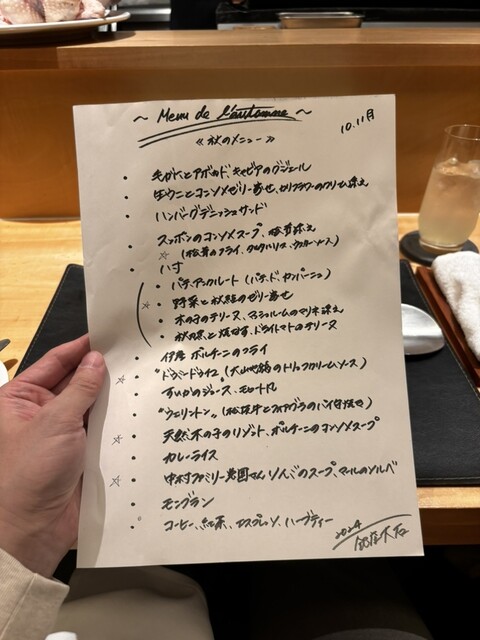 ~ Menu de l'automne ~
10.11月
《秋のメニュー》
・ 毛がにとアボカド、キャビアのグジェール
・ 生ウニとコンソメゼリー寄せ、カリフラワーのクリーム添え
・ ハンバーグデニッシュサンド
・ スッポンのコンソメスープ、松茸添え
☆ (松茸のフライ、タルタルソース、ウスターソース)
・ 八寸
・ パテ・アンクルート (パテ・ド・カンパーニュ)
☆ ・ 野菜と秋鮭のゼリー寄せ
・ 木の子のテリーヌ、マッシュルームのマリネ添え
・ 秋刀魚と焼なす、ドライトマトのテリーヌ
・ 伊産 ポルチーニのフライ
☆ ・ "ドゥミードゥイユ" (大山地鶏のトリュフクリームソース)
・ すいかのジュース、モヒート風
・ "ウェリントン" (松阪牛とフォアグラのパイ包焼き)
☆ ・ 天然木の子のリゾット、ポルチーニのコンソメスープ
・ カレーライス
☆ ・ 中村ファミリー農園さんりんごのスープ、マールのソルベ
・ モンブラン
・ コーヒー、紅茶、エスプレッソ、ハーブティー
2024
銀座大石